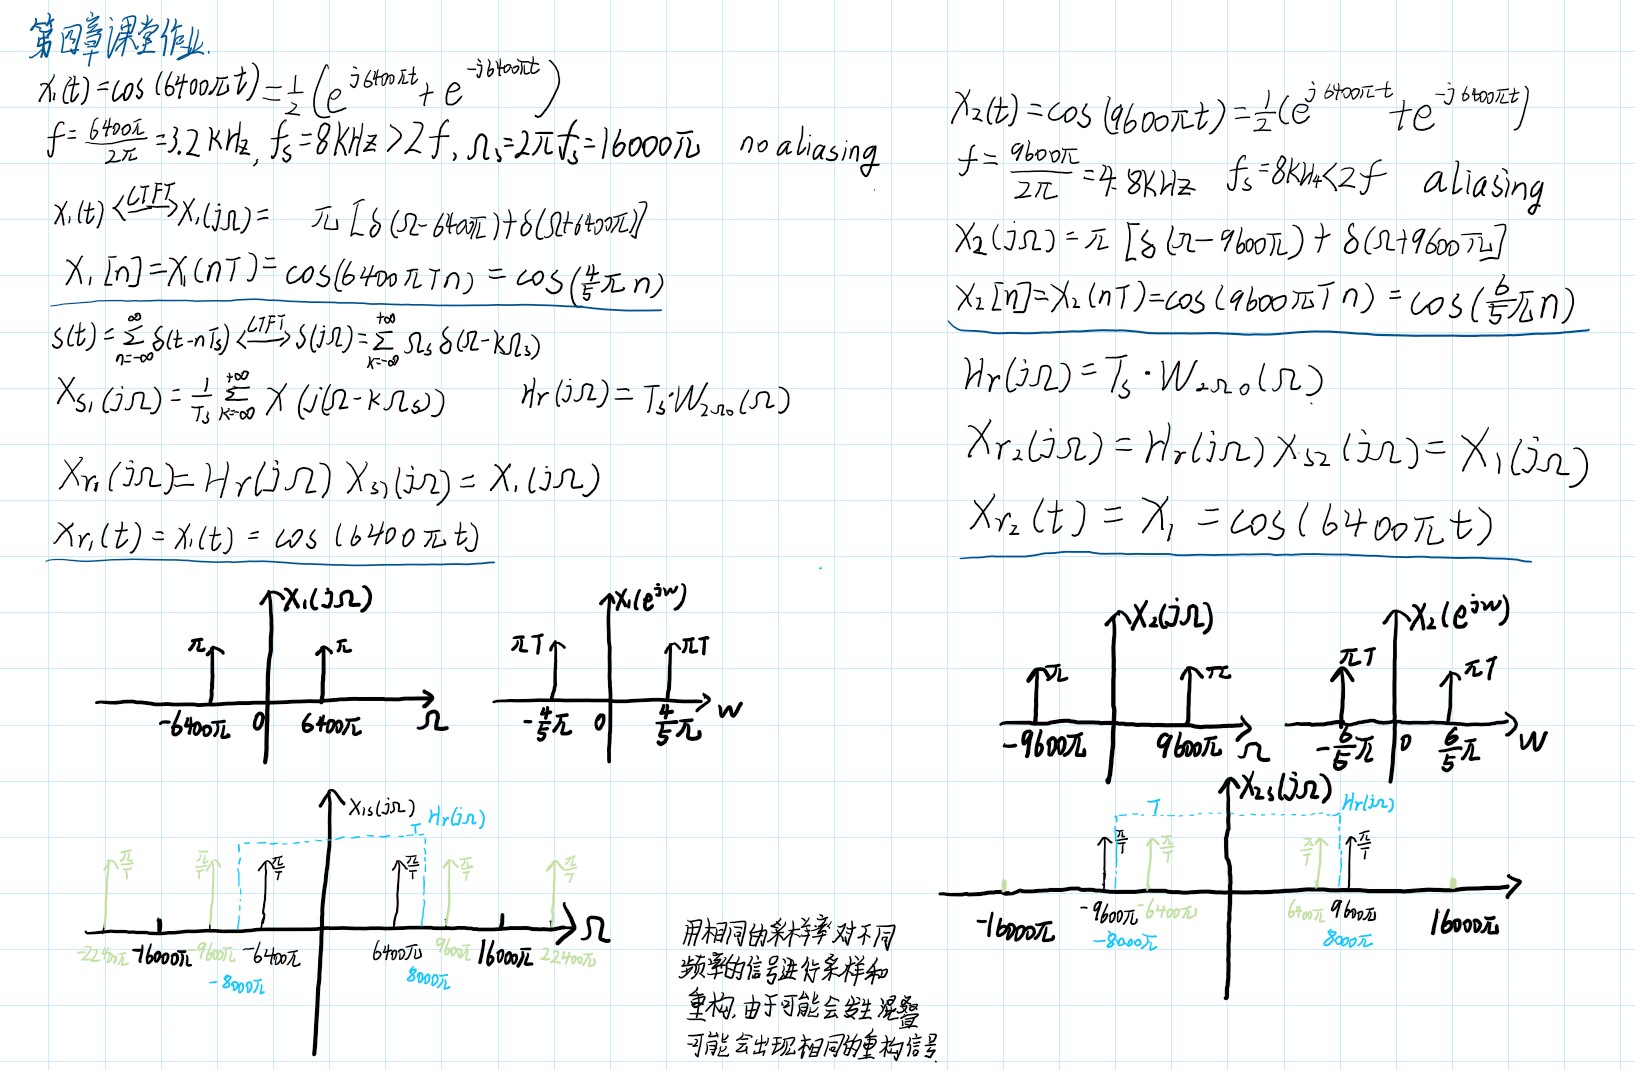 第四章课堂作业.
x₁(t)=cos(6400πt)=½(e^{j6400πt}+e^{-j6400πt})
f=6400π/2π=3.2KHz, fs=8KHz>2f, Ωs=2πfs=16000π no aliasing
x₁(t)<CTFT>X₁(jΩ)= π[δ(Ω-6400π)+δ(Ω+6400π)]
X₁[n]=X₁(nT)=cos(6400πTn)=cos(4/5πn)
s(t)=∑_{n=-∞}^{∞}δ(t-nTs)<CTFT>S(jΩ)=∑_{k=-∞}^{+∞}Ωsδ(Ω-kΩs)
Xs₁(jΩ)=1/Ts∑_{k=-∞}^{+∞}X(j(Ω-kΩs)) Hr(jΩ)=Ts·W_{2Ω₀}(Ω)
Xr₁(jΩ)=Hr(jΩ)Xs₁(jΩ)=X₁(jΩ)
Xr₁(t)=x₁(t)=cos(6400πt)
X₂(t)=cos(9600πt)=½(e^{j6400πt}+e^{-j6400πt})
f=9600π/2π=4.8KHz fs=8KHz<2f aliasing
X₂(jΩ)=π[δ(Ω-9600π)+δ(Ω+9600π)]
X₂[n]=X₂(nT)=cos(9600πTn)=cos(6/5πn)
Hr(jΩ)=Ts·W_{2Ω₀}(Ω)
Xr₂(jΩ)=Hr(jΩ)Xs₂(jΩ)=X₁(jΩ)
Xr₂(t)=X₁=cos(6400πt)
X₁(jΩ)
π π
-6400π 0 6400π Ω
X₁(e^{jw})
πT πT
-4/5π 0 4/5π w
X₂(jΩ)
π π
-9600π 9600π Ω
X₂(e^{jw})
πT πT
-6/5π 0 6/5π w
X₁s(jΩ) T Hr(jΩ)
π/T π/T π/T π/T π/T π/T
-22400π -16000π -9600π -6400π 6400π 9600π 16000π 22400π Ω
-8000π 8000π
X₂s(jΩ) T Hr(jΩ)
π/T π/T π/T π/T
-16000π -9600π -6400π 6400π 9600π 16000π
-8000π 8000π
用相同的采样率对不同
频率的信号进行采样和
重构,由于可能会发生混叠
可能会出现相同的重构信号